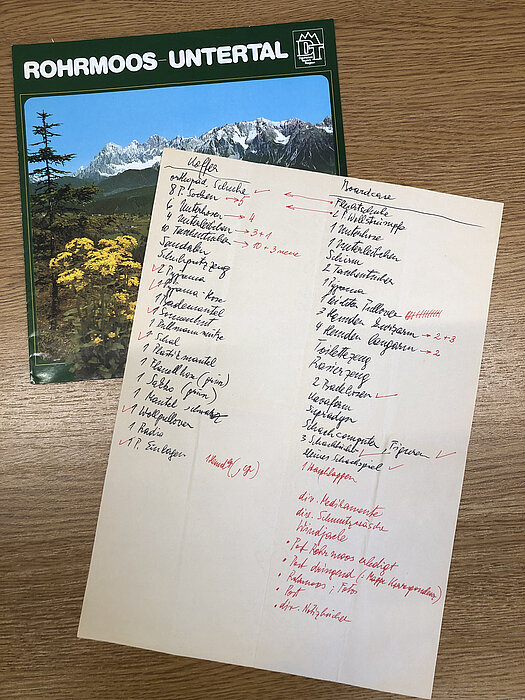 ROHRMOOS-UNTERTAL
Koffer
orthopäd. Schuhe ✓
8 P. Socken → 5
6 Unterhosen → 4
4 Unterleibchen → 3+1
10 Taschentücher → 10 + 3 neue
Sandalen
Schuhputzzeug
✓ 2 Pyjama
1 Pyjama Hose
✓ 1 Bademantel
1 Sonnenhut
1 Pullmannmütze
✓ 1 Schal
1 Plastikmantel
1 Flanellhose (grün)
1 Sakko (grün)
1 Mantel schwarz
✓ 1 Wollpullover
1 Radio
✓ 1 P. Einlagen
Boardcase
Flugschuhe
2 P. Wollstrümpfe
1 Unterhose
1 Unterleibchen
Schirm
2 Taschentücher
1 Pyjama
1 leichter Pullover
3 Hemden kurzarm → 2+3
4 Hemden langarm → 2
Toilettezeug
Rasierzeug
2 Badehosen ✓
Schachcomputer, Figuren ✓
3 Schachbücher ✓
kleines Schachspiel ✓
1 Waschlappen
div. Medikamente
div. Schmutzwäsche
Windjacke
• Post Rohrmoos erledigt
• Post dringend (: Mappe Korrespondenz)
• Rohrmoos; Fotos
• Post
• div. Notizbücher